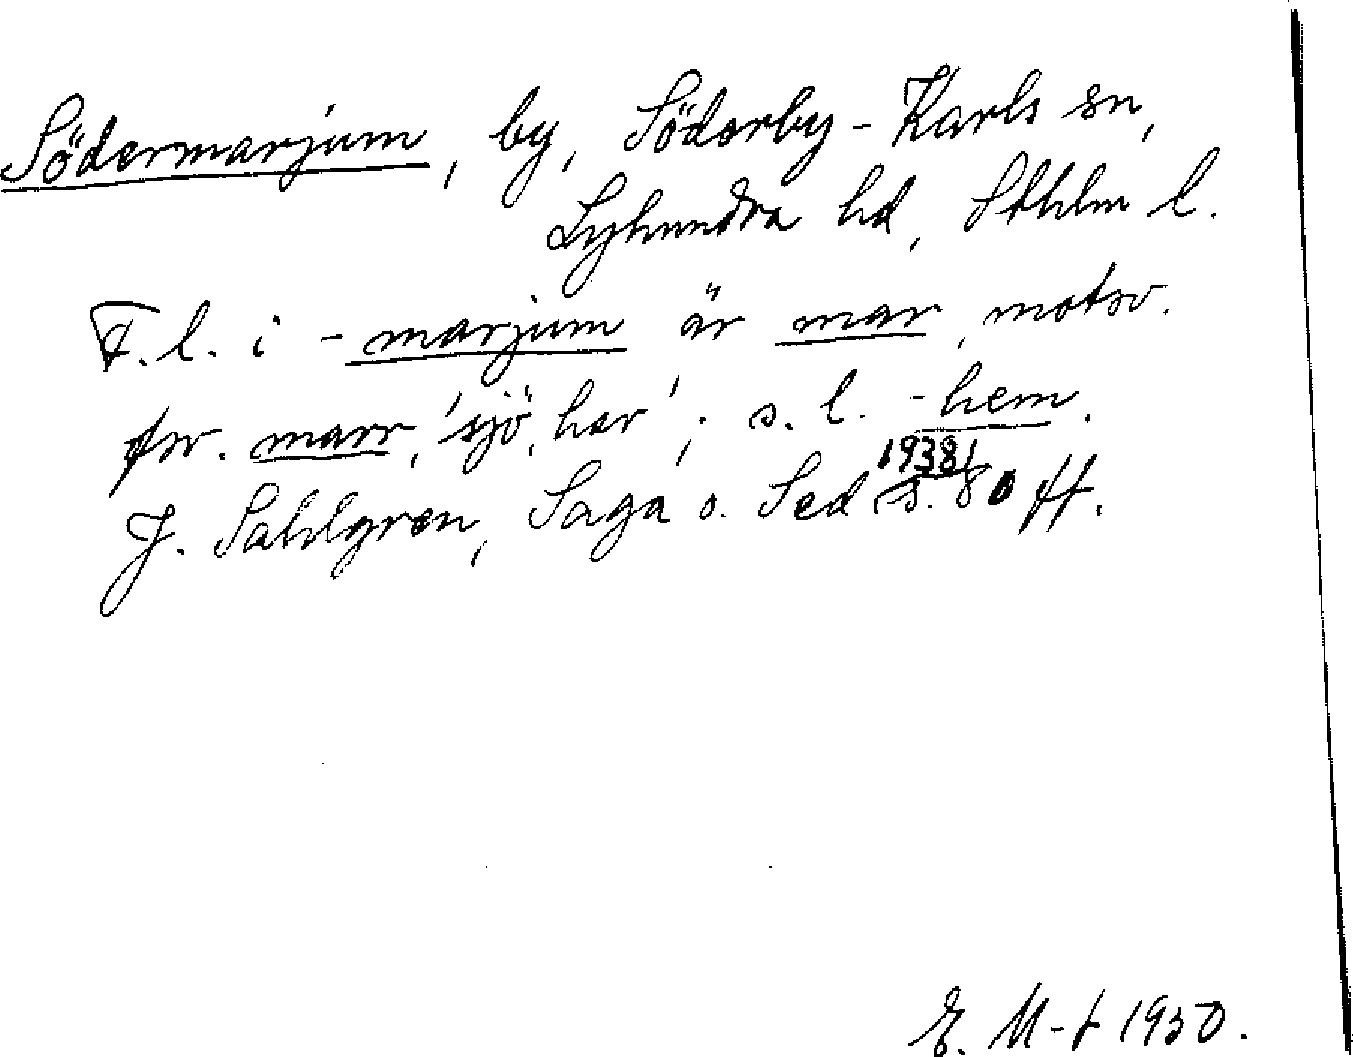 Södermarjum, by, Söderby-Karls sn,
Lyhundra hd, Sthlm l.
F.l. i -marjum är mar, motsv.
fsv. marr, 'sjö, hav'; s.l. -hem.
J. Sahlgren, Saga o. Sed 1938, s. 80 ff.
E. M-t 1950.